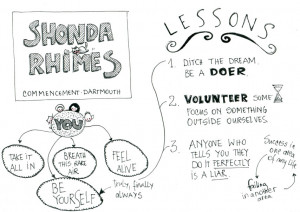 SHONDA
RHIMES
COMMENCEMENT: DARTMOUTH
YOU
TAKE IT
ALL IN
BREATH
THIS RARE
AIR
FEEL
ALIVE
BE
YOURSELF
truly, finally
always
LESSONS
1. DITCH THE DREAM.
BE A DOER.
2. VOLUNTEER SOME
FOCUS ON SOMETHING
OUTSIDE OURSELVES.
3. ANYONE WHO
TELLS YOU THEY
DO IT PERFECTLY
IS A LIAR
Success in
one area
of my life
failing
in another
area